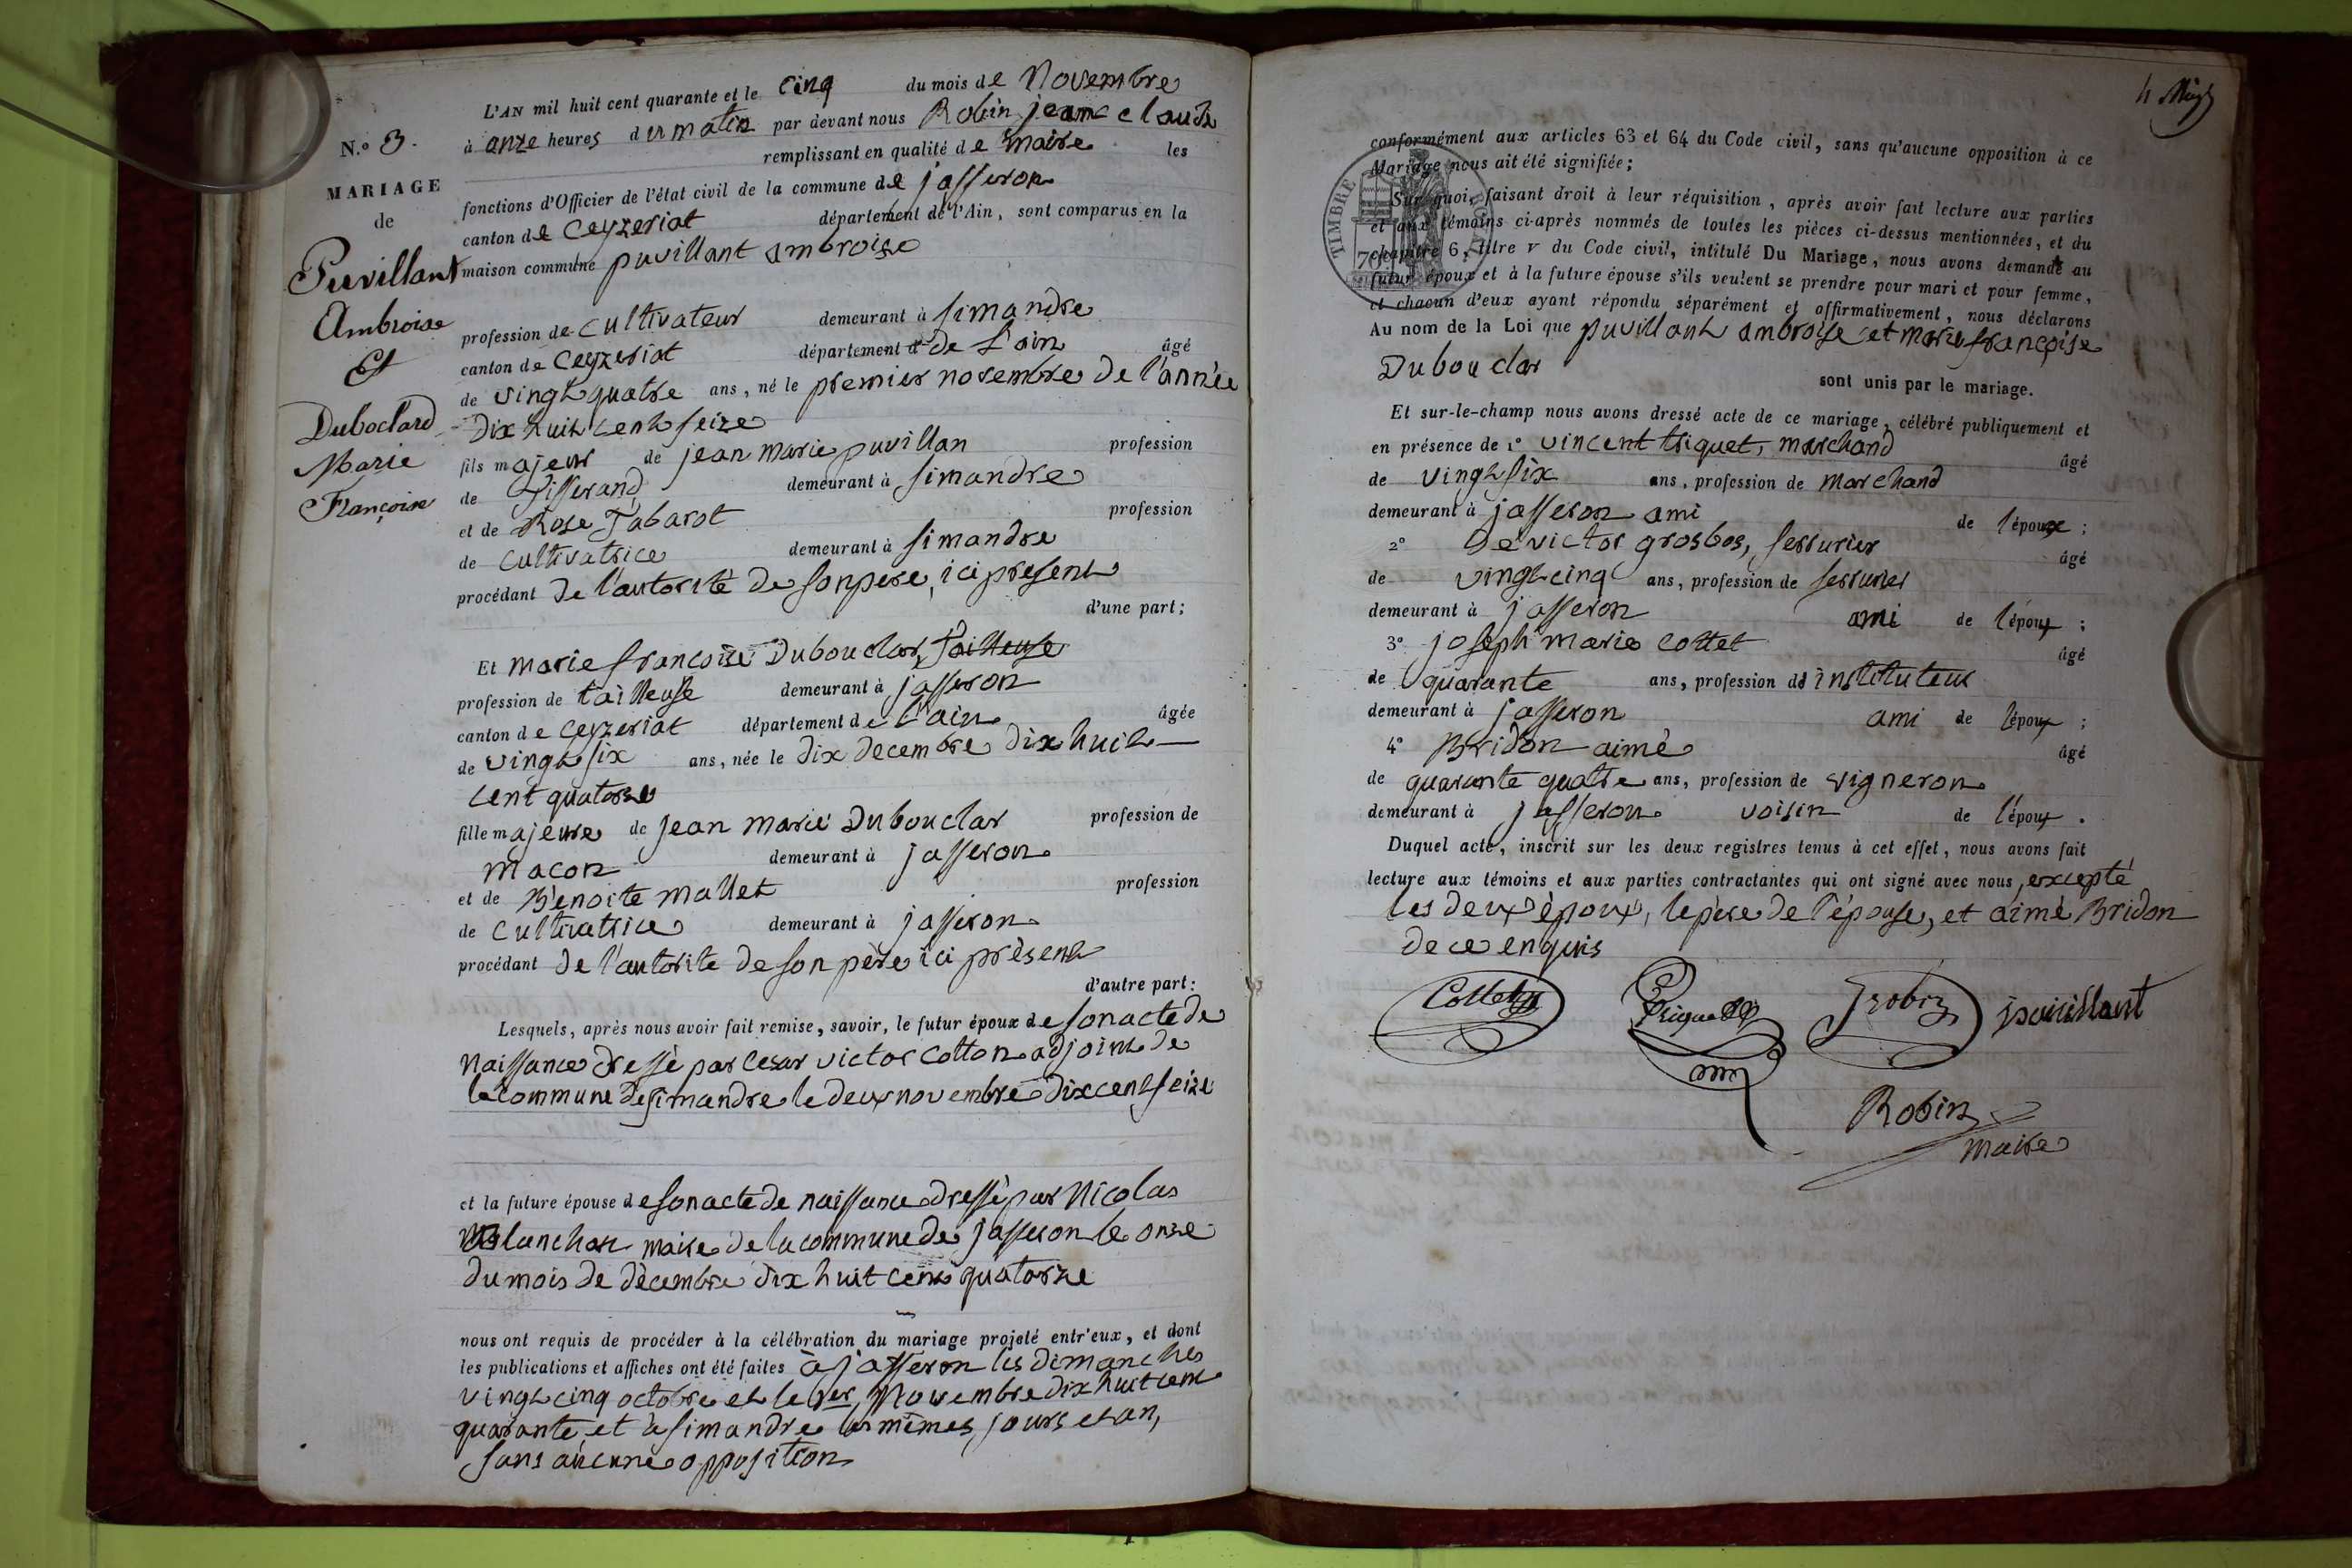 N.o 3.
MARIAGE
de
Puvillant
Ambroise
Et
Duboclard
Marie
Françoise
L'AN mil huit cent quarante et le cinq du mois de Novembre
à onze heures du matin par devant nous Robin jean claude
remplissant en qualité de maire les
fonctions d'Officier de l'état civil de la commune de jasseron
canton de Ceyzeriat département de l'Ain, sont comparus en la
maison commune puvillant ambroise
profession de cultivateur demeurant à simandre
canton de Ceyzeriat département de L'ain âgé
de vingt quatre ans, né le premier novembre de l'année
Dix huit cent seize
fils majeur de jean marie puvillan profession
de Tisserand demeurant à simandre
et de Rose Tabarot profession
de cultivatrice demeurant à simandre
procédant De l'autorité de son pere, ici present
d'une part;
Et marie francoise Dubouclar, Tailleuse
profession de tailleuse demeurant à jasseron
canton de Ceyzeriat département de l'ain âgée
de vingt six ans, née le dix decembre dix huit
cent quatorze
fille majeure de jean marie Dubouclar profession de
macon demeurant à jasseron
et de Bénoite mallet profession
de cultivatrice demeurant à jasseron
procédant de l'autorite de son père ici présent
d'autre part:
Lesquels, après nous avoir fait remise, savoir, le futur époux de son acte de
naissance dressé par Cesar victor Cotton adjoint de
la commune de simandre le deux novembre dix cent seize
et la future épouse de son acte de naissance dressé par Nicolas
maire de la commune de jasseron le onze
du mois de décembre dix huit cent quatorze
nous ont requis de procéder à la célébration du mariage projeté entr'eux, et dont
les publications et affiches ont été faites à jasseron les dimanches
vingt cinq octobre et le 1er, Novembre dix huit cent
quarante, et à simandre les mêmes jours et an,
sans aucune opposition
conformément aux articles 63 et 64 du Code civil, sans qu'aucune opposition à ce
Mariage nous ait été signifiée;
TIMBRE ROYAL
70
Sur quoi, faisant droit à leur réquisition, après avoir fait lecture aux parties
et aux témoins ci-après nommés de toutes les pièces ci-dessus mentionnées, et du
chapitre 6, titre v du Code civil, intitulé Du Mariage, nous avons demandé au
futur époux et à la future épouse s'ils veulent se prendre pour mari et pour femme,
et chacun d'eux ayant répondu séparément et affirmativement, nous déclarons
Au nom de la Loi que puvillant ambroise et marie françoise
Dubouclar
sont unis par le mariage.
Et sur-le-champ nous avons dressé acte de ce mariage, célébré publiquement et
en présence de 1o vincent triquet, marchand
âgé
de vingt six ans, profession de marchand
demeurant à jasseron ami de l'époux;
2o De victor grosbos, serrurier
âgé
de vingt cinq ans, profession de serrurier
demeurant à jasseron ami de l'époux;
3o joseph marie Cottet
âgé
de quarante ans, profession d'instituteur
demeurant à jasseron ami de l'époux;
4o Bridon aimé
âgé
de quarante quatre ans, profession de vigneron
demeurant à jasseron voisin de l'époux.
Duquel acte, inscrit sur les deux registres tenus à cet effet, nous avons fait
lecture aux témoins et aux parties contractantes qui ont signé avec nous, excepté
les deux époux, le père de l'épouse, et aimé Bridon
de ce enquis
Cottet puvillant
Robin
maire